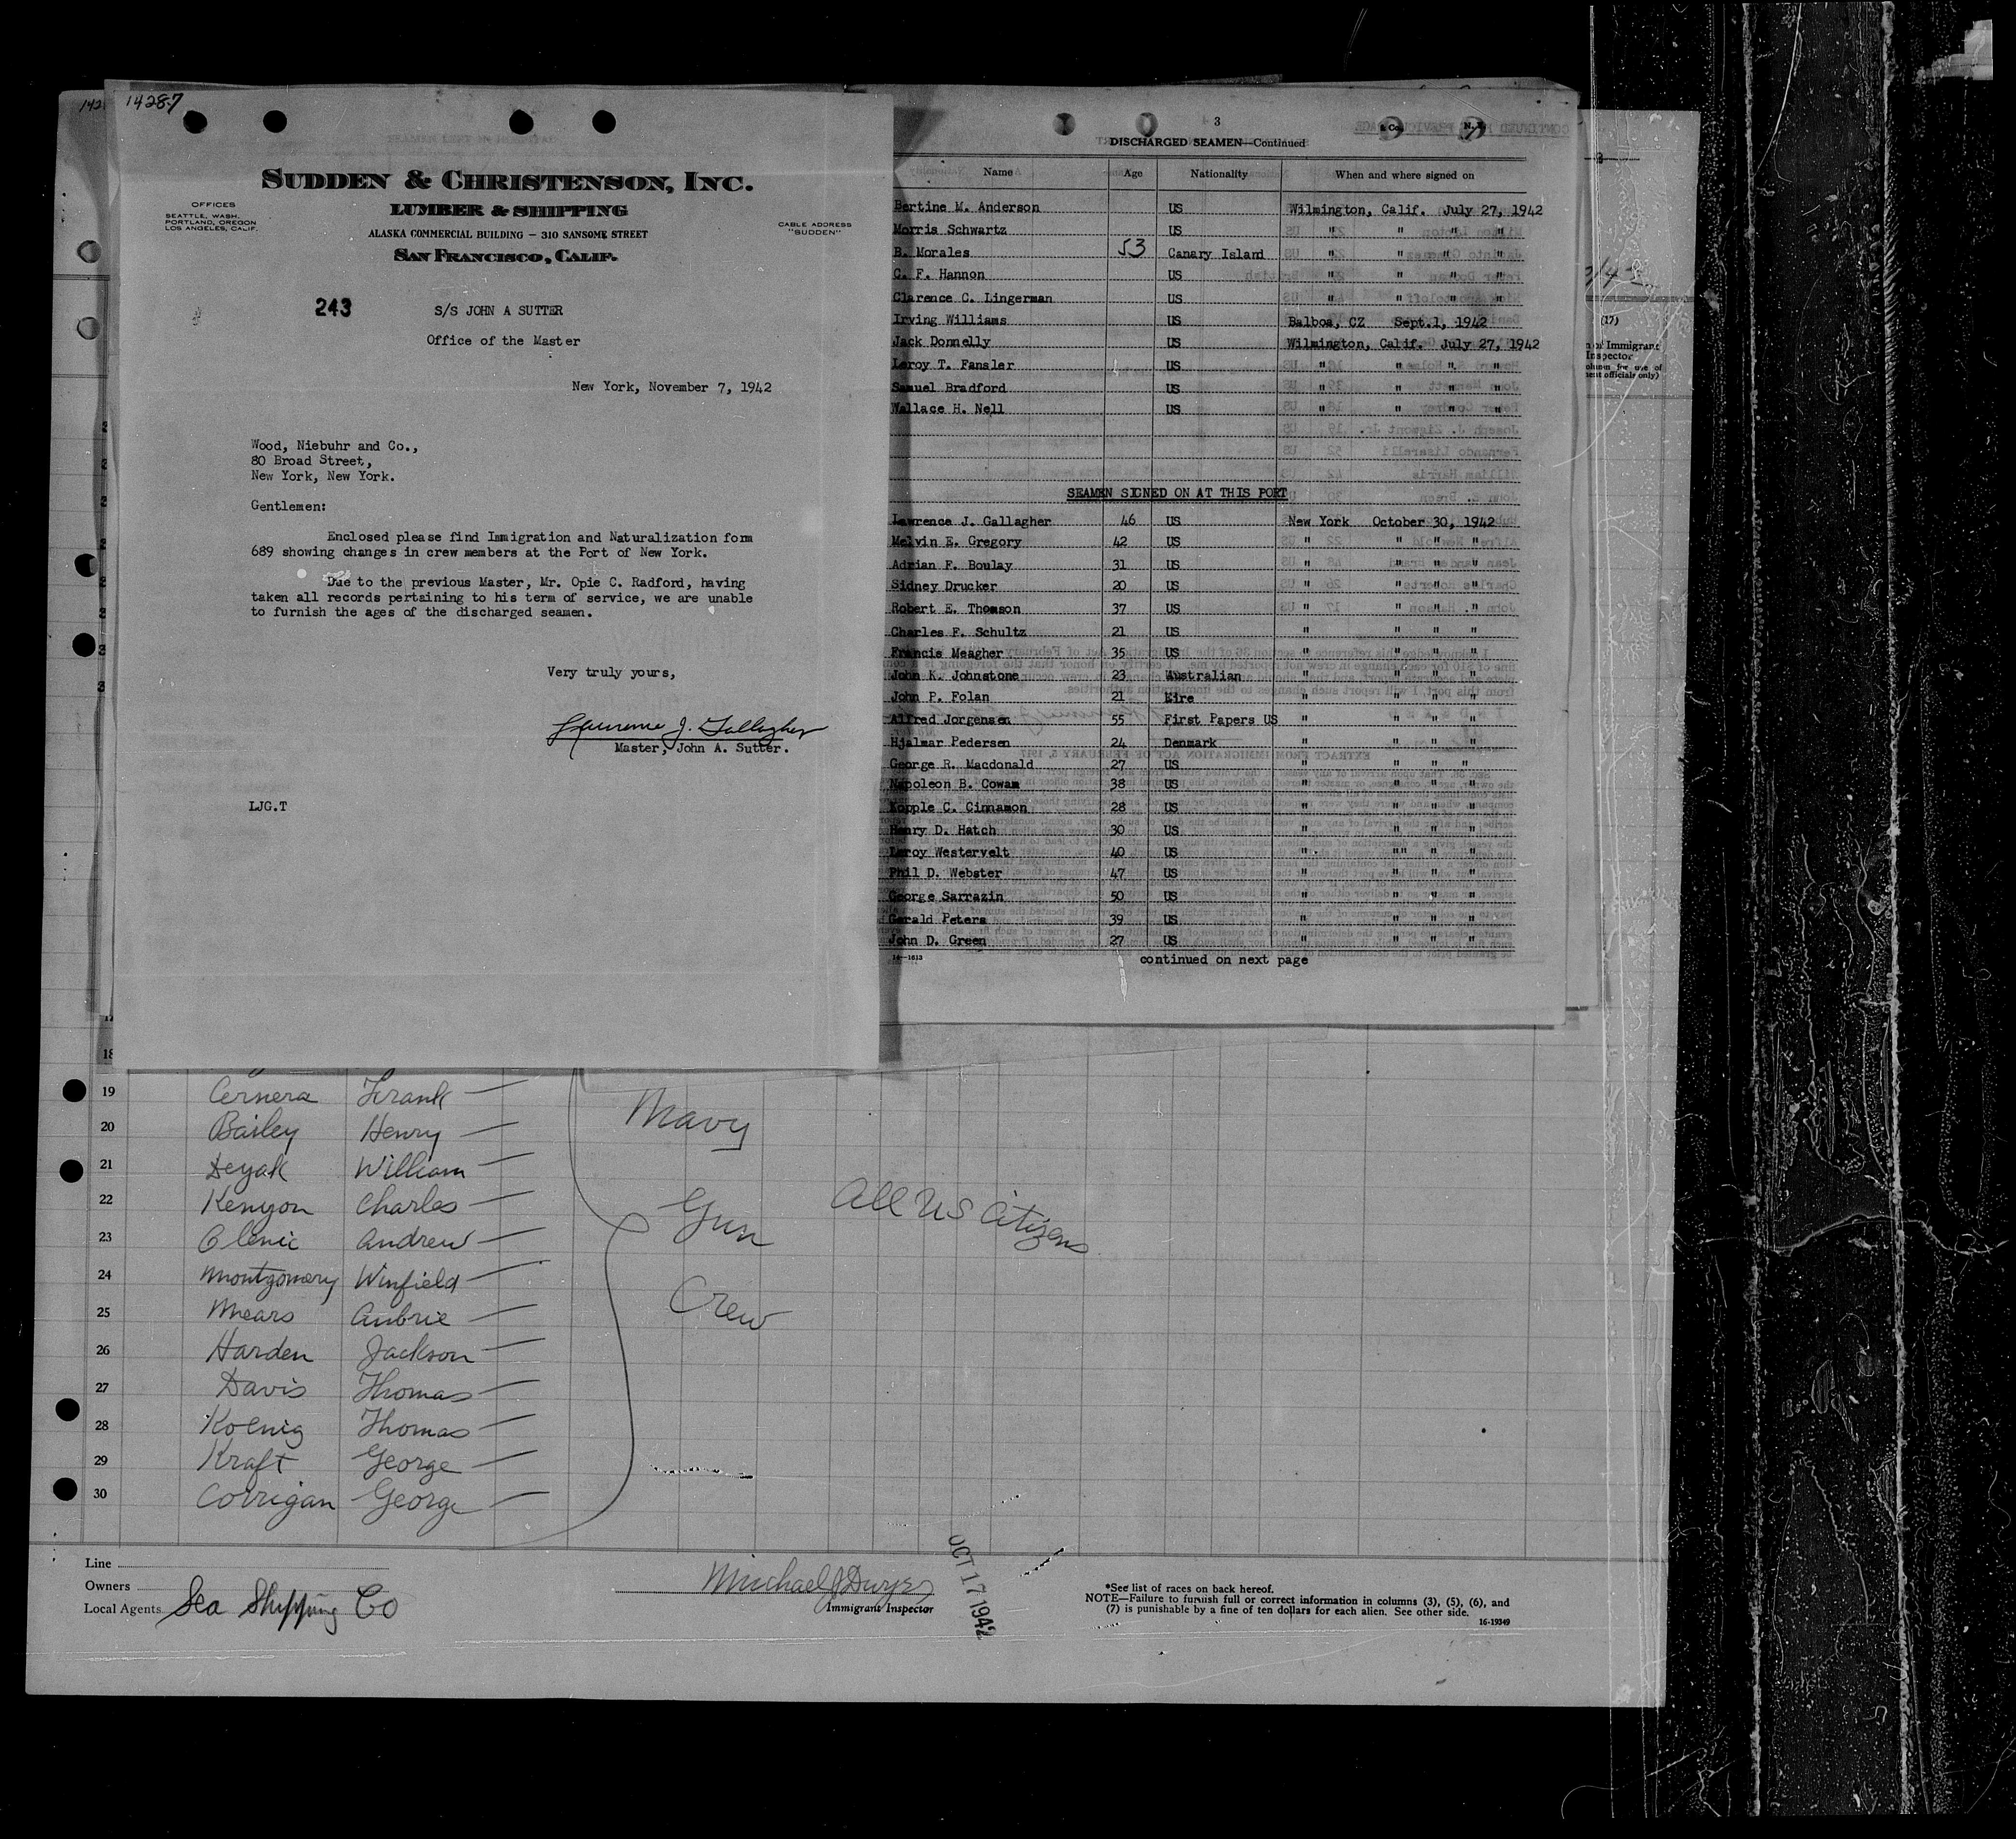 14287
SUDDEN & CHRISTENSON, INC.
OFFICES
SEATTLE, WASH.
PORTLAND, OREGON
LOS ANGELES, CALIF.
LUMBER & SHIPPING
CABLE ADDRESS
"SUDDEN"
ALASKA COMMERCIAL BUILDING — 310 SANSOME STREET
SAN FRANCISCO, CALIF.
243
S/S JOHN A SUTTER
Office of the Master
New York, November 7, 1942
Wood, Niebuhr and Co.,
80 Broad Street,
New York, New York.
Gentlemen:
Enclosed please find Immigration and Naturalization form
689 showing changes in crew members at the Port of New York.
Due to the previous Master, Mr. Opie C. Radford, having
taken all records pertaining to his term of service, we are unable
to furnish the ages of the discharged seamen.
Very truly yours,
Lawrence J. Gallagher
Master, John A. Sutter.
LJG.T
3
DISCHARGED SEAMEN—Continued
Name Age Nationality When and where signed on
Bertine M. Anderson US Wilmington, Calif. July 27, 1942
Morris Schwartz US " " " "
B. Morales 53 Canary Island " " " "
C. F. Hannon US " " " "
Clarence C. Lingerman US " " " "
Irving Williams US Balboa, CZ Sept.1, 1942
Jack Donnelly US Wilmington, Calif. July 27, 1942
Leroy T. Fansler US " " " "
Samuel Bradford US " " " "
Wallace H. Nell US " " " "
SEAMEN SIGNED ON AT THIS PORT
Lawrence J. Gallagher 46 US New York October 30, 1942
Melvin E. Gregory 42 US " " " "
Adrian F. Boulay 31 US " " " "
Sidney Drucker 20 US " " " "
Robert E. Thomson 37 US " " " "
Charles F. Schultz 21 US " " " "
Francis Meagher 35 US " " " "
John K. Johnstone 23 Australian " " " "
John P. Folan 21 Eire " " " "
Alfred Jorgensen 55 First Papers US " " " "
Hjalmar Pedersen 24 Denmark " " " "
George R. Macdonald 27 US " " " "
Napoleon B. Cowan 38 US " " " "
Kopple C. Cinnamon 28 US " " " "
Henry D. Hatch 30 US " " " "
Leroy Westervelt 40 US " "" " "
Phil D. Webster 47 US " " " "
George Sarrazin 50 US " " " "
Gerald Peters 39 US " " " "
John D. Green 27 US " " " "
14—1613
continued on next page
(17)
of Immigrant
Inspector
18
19 Cernera Frank —
20 Bailey Henry —
21 Deyak William —
22 Kenyon Charles —
23 Olenic Andrew —
24 Montgomery Winfield —
25 Mears Aubrie —
26 Harden Jackson —
27 Davis Thomas —
28 Koenig Thomas —
29 Kraft George —
30 Corrigan George —
Navy
Gun
Crew
All US Citizens
Line
Owners
Local Agents Sea Shipping Co
Michael J Dwyer
Immigrant Inspector
OCT 17 1942
*See list of races on back hereof.
NOTE—Failure to furnish full or correct information in columns (3), (5), (6), and
(7) is punishable by a fine of ten dollars for each alien. See other side.
16-19349